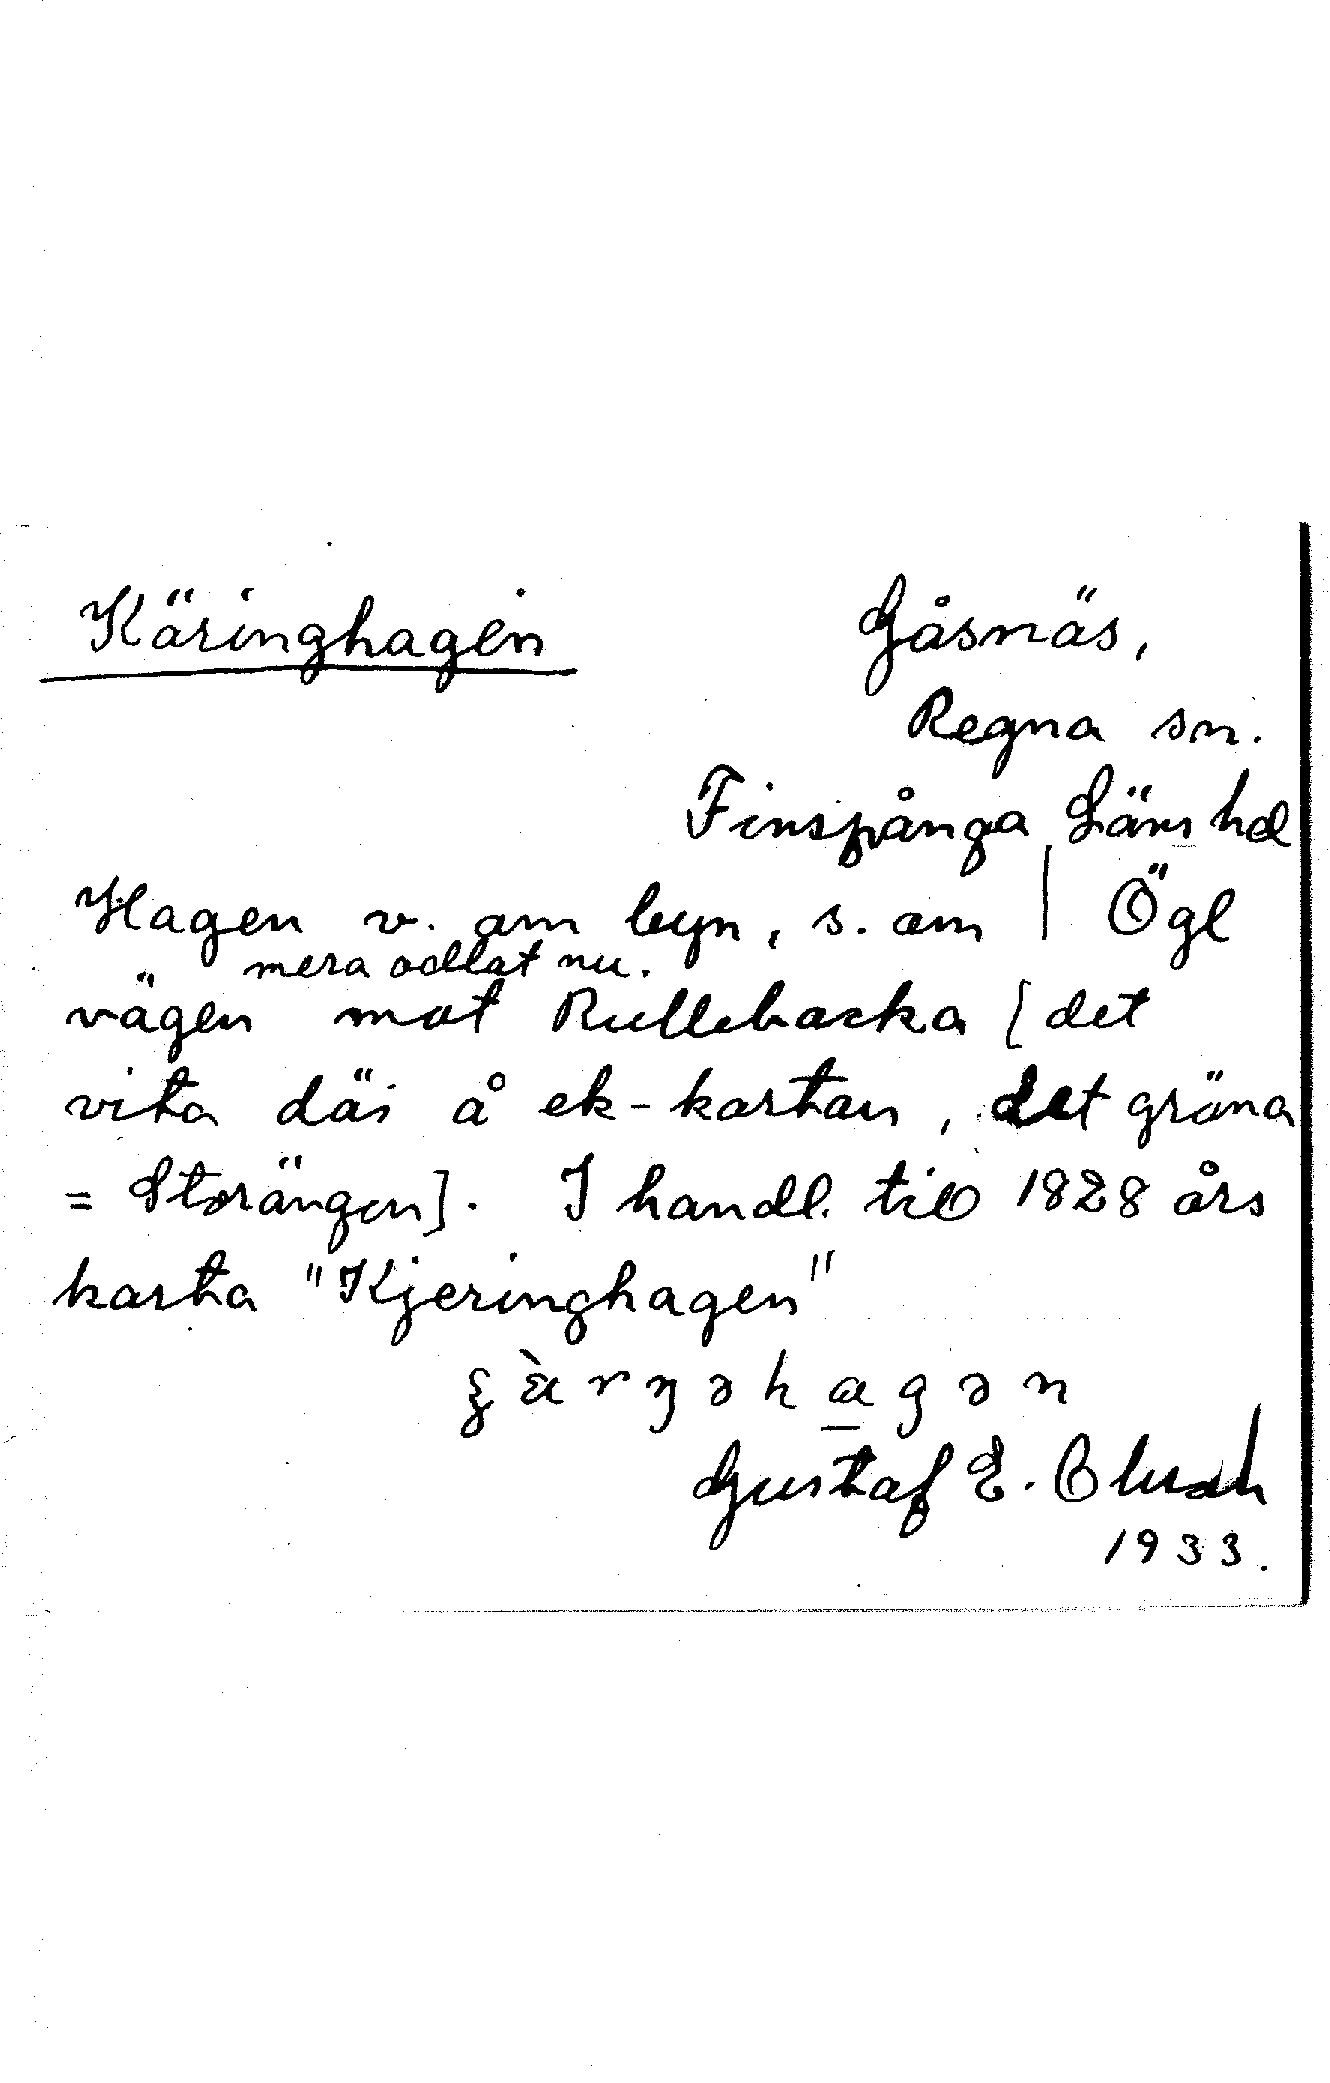 Käringhagen
Gåsnäs,
Regna sn.
Finspånga Läns hd
Hagen v. om byn, s. om | Ögl
mera odlat nu.
vägen mot Rullebacka [det
vita där å ek-kartan, det gröna
= Storängen]. I handl. till 1828 års
karta "Kjeringhagen"
Gustaf E.
1933.